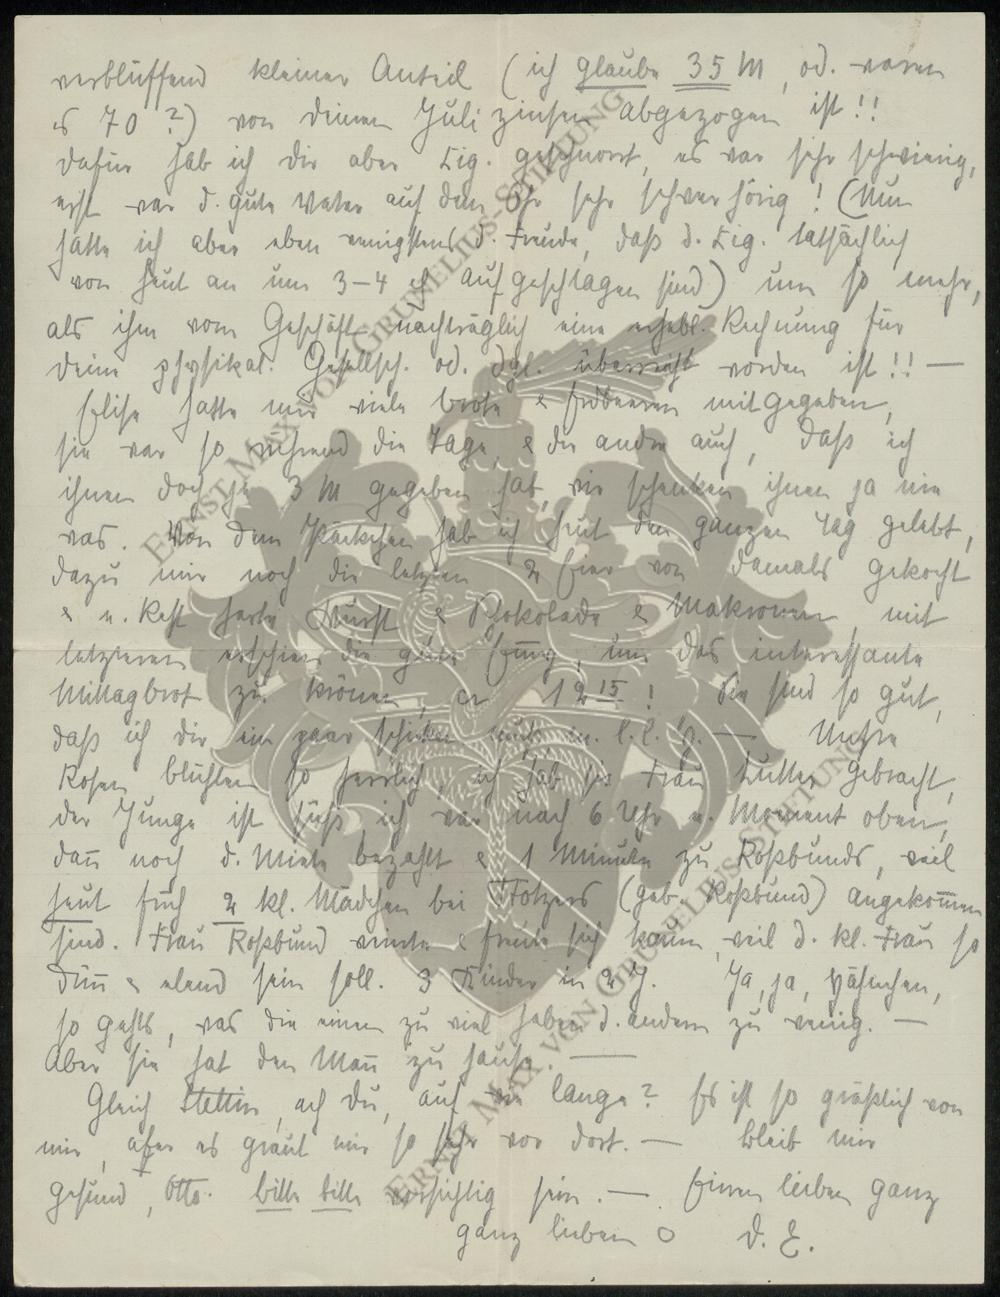 verblüffend kleiner Anteil (ich glaube 35 M, od. waren
es 70?) von deinen Julizinsen abgezogen ist!!
dafür hab ich dir aber Zig. geschnorrt, es war sehr schwierig,
erst war d. gute Vater auf dem Ohr sehr schwerhörig! (Nun
hatte ich aber eben wenigstens d. Freude, daß d. Zig. tatsächlich
von heut an um 3–4 aufgeschlagen sind) um so mehr,
als ihm vom Geschäft nachträglich eine erhebl. Rechnung für
deine physikal. Gesellsch. od. dgl. überreicht worden ist!! —
Elise hatte mir viele Brote & Erdbeeren mitgegeben,
sie war so rührend die Tage, & die andre auch, daß ich
ihnen doch je 3 M gegeben hab, wir schenken ihnen ja nie
was. Von dem Päckchen hab ich heut den ganzen Tag gelebt,
dazu mir noch die letzten 2 Eier von damals gekocht
& n. Rest harte Wurst & Schokolade & Makronen, mit
letzteren erschien die gute, um das interessante
Mittagbrot zu krönen, er 12 15! Sie sind so gut,
daß ich dir ein paar schicken — Unsre
Rosen blühten so herrlich, ich hab sie Frau Lutter gebracht,
der Junge ist süß, ich war nach 6 Uhr n. Moment oben,
dan̄ noch d. Miete bezahlt & 1 Minute zu Roßbunds, weil
heut früh 2 kl. Mädchen bei (geb. Roßbund) angekom̄en
sind. Frau Roßbund weinte & freute sich kaum, weil d. kl. Frau so
dün̄ & elend sein soll. 3 Kinder in 2 J. Ja, ja,
so gehts, was die einen zu viel haben d. andern zu wenig. —
Aber sie hat den Man̄ zu hause. —
Gleich Stettin, ach du, auf wie lange? Es ist so gräßlich von
mir, aber es graut mir so sehr vor dort. — Bleib mir
gesund, Otto. bitte bitte vorsichtig sein. — Einen lieben ganz
ganz lieben O D. E.
ERNST MAX VON GRUNELIUS-STIFTUNG
ERNST MAX VON GRUNELIUS-STIFTUNG